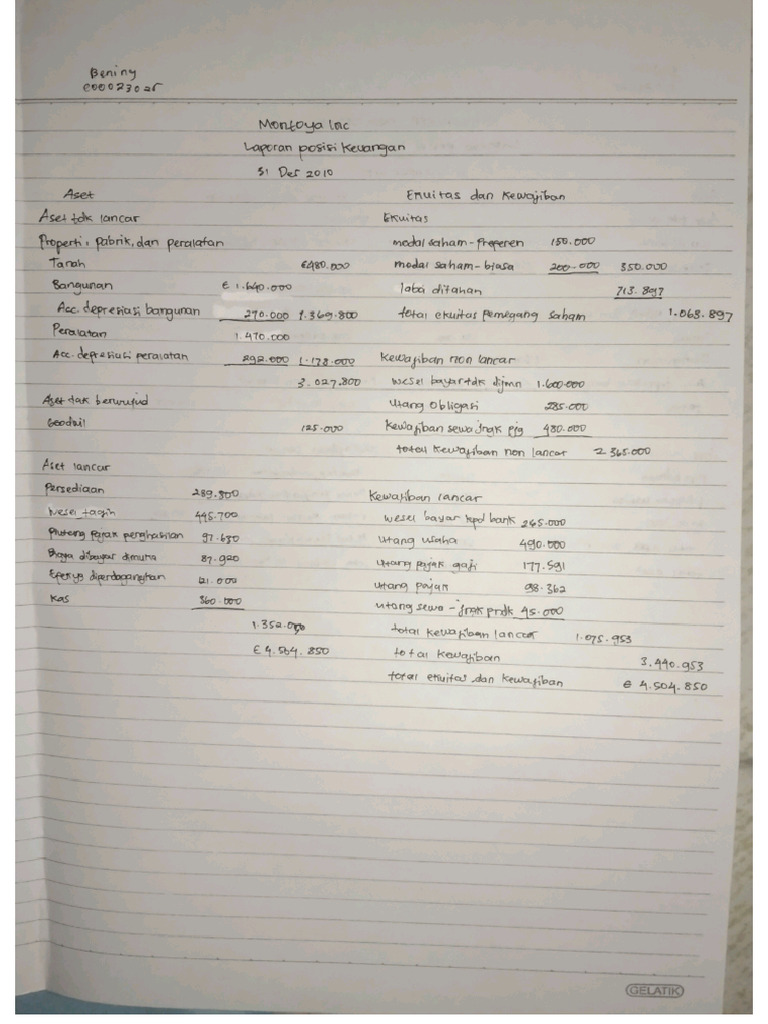 Beniny
Montoya Inc
Laporan posisi keuangan
31 Des 2010
Aset
Ekuitas dan Kewajiban
Aset tdk lancar
Ekuitas
Properti, pabrik, dan peralatan
modal saham - preferen 150.000
Tanah €480.000
modal saham - biasa 200.000 350.000
Bangunan € 1.640.000
laba ditahan 713.897
Acc. depresiasi bangunan 270.000 1.369.800
total ekuitas pemegang saham 1.063.897
Peralatan 1.470.000
Acc. depresiasi peralatan 292.000 1.178.000
Kewajiban non lancar
3.027.800
wesel bayar tdk dijmn 1.600.000
Aset tak berwujud
utang obligasi 285.000
Goodwil 125.000
Kewajiban sewa jngk pjg 480.000
total kewajiban non lancar 2.365.000
Aset lancar
Persediaan 239.800
Kewajiban lancar
Wesel tagih 445.700
wesel bayar kpd bank 265.000
Piutang pajak penghasilan 97.630
utang usaha 490.000
Biaya dibayar dimuka 87.920
utang pajak gaji 177.591
Efek yg diperdagangkan 121.000
utang pajak 98.362
Kas 360.000
utang sewa - jngk pndk 45.000
1.352.050
total kewajiban lancar 1.075.953
€ 4.504.850
total kewajiban 3.440.953
total ekuitas dan kewajiban € 4.504.850
GELATIK